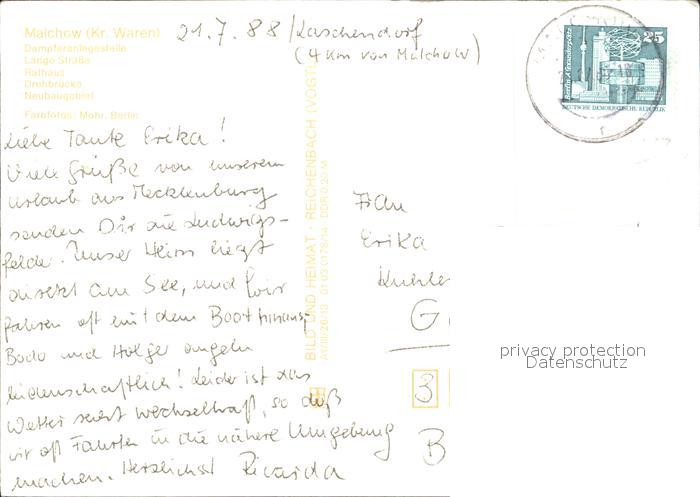 Malchow (Kr. Waren)
Dampferanlegestelle
Lange Straße
Rathaus
Drehbrücke
Neubaugebiet
Farbfotos: Mohr, Berlin
21.7.88/Kaschendorf
(4 km von Malchow)
Liebe Tante Erika!
Viele Grüße von unserem
Urlaub aus Mecklenburg
senden Dir die Ludwigs-
felder. Unser Heim liegt
direkt am See, und wir
fahren oft mit dem Boot hinaus,
Bodo und Holger angeln
leidenschaftlich! Leider ist das
Wetter sehr wechselhaft, so daß
wir oft Fahrten in die nähere Umgebung
machen. Herzlichst Ricarda
BILD UND HEIMAT · REICHENBACH (VOGTL
A1/III/26/13 01 03 0178/14 DDR 0,20 M
Berlin, Alexanderplatz
25
DEUTSCHE DEMOKRATISCHE REPUBLIK
Frau
Erika
G
3
B
privacy protection
Datenschutz